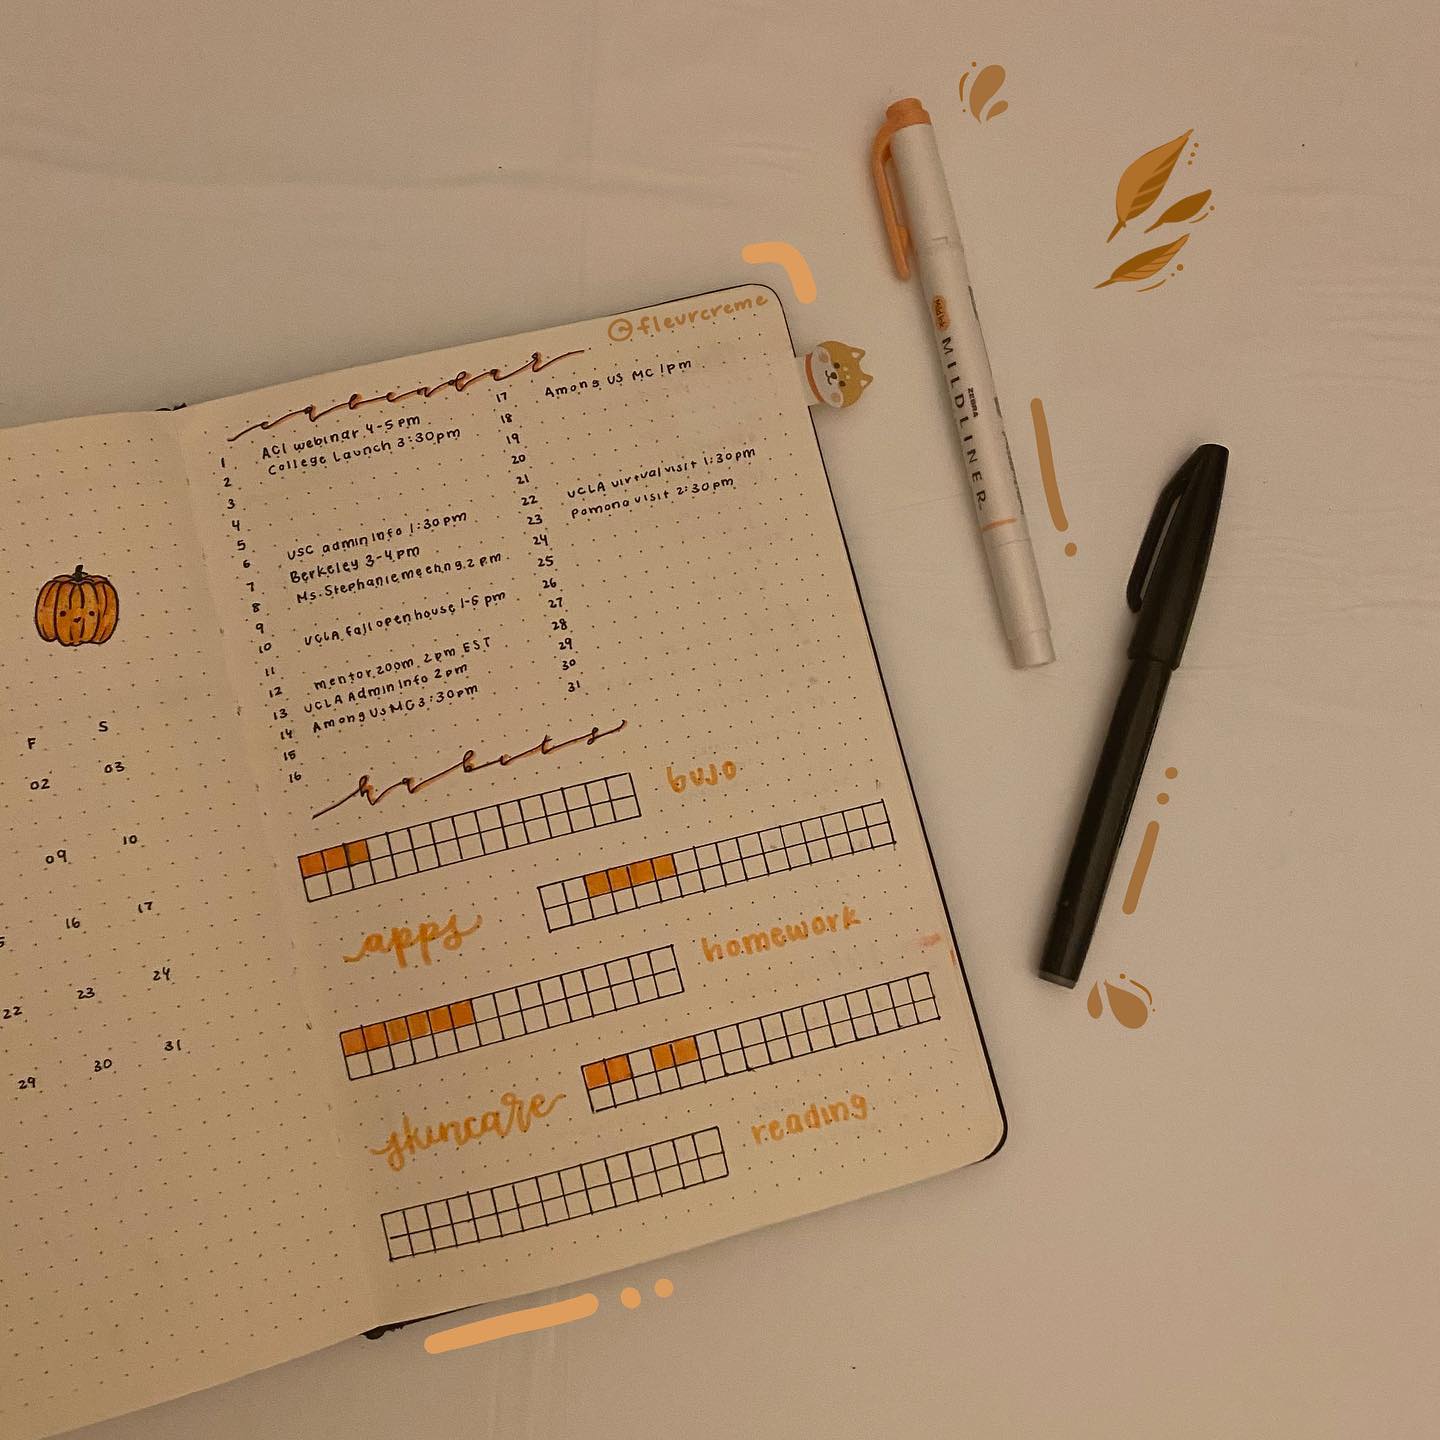 F S
02 03
09 10
16 17
22 23 24
29 30 31
@fleurcreme
calendar
1 ACI webinar 4-5pm
2 College Launch 3:30pm
3
4
5
6 USC admin info 1:30pm
7 Berkeley 3-4pm
8 Ms. Stephanie meeting 2pm
9
10 UCLA fall open house 1-5pm
11
12 mentor zoom 2pm EST
13 UCLA Admin info 2pm
14 Among Us MC 3:30pm
15
16
17 Among us MC 1pm
18
19
20
21
22 UCLA virtual visit 1:30pm
23 Pomona visit 2:30pm
24
25
26
27
28
29
30
31
habits
bujo
apps
homework
skincare
reading
Mild ink
MILDLINER
ZEBRA